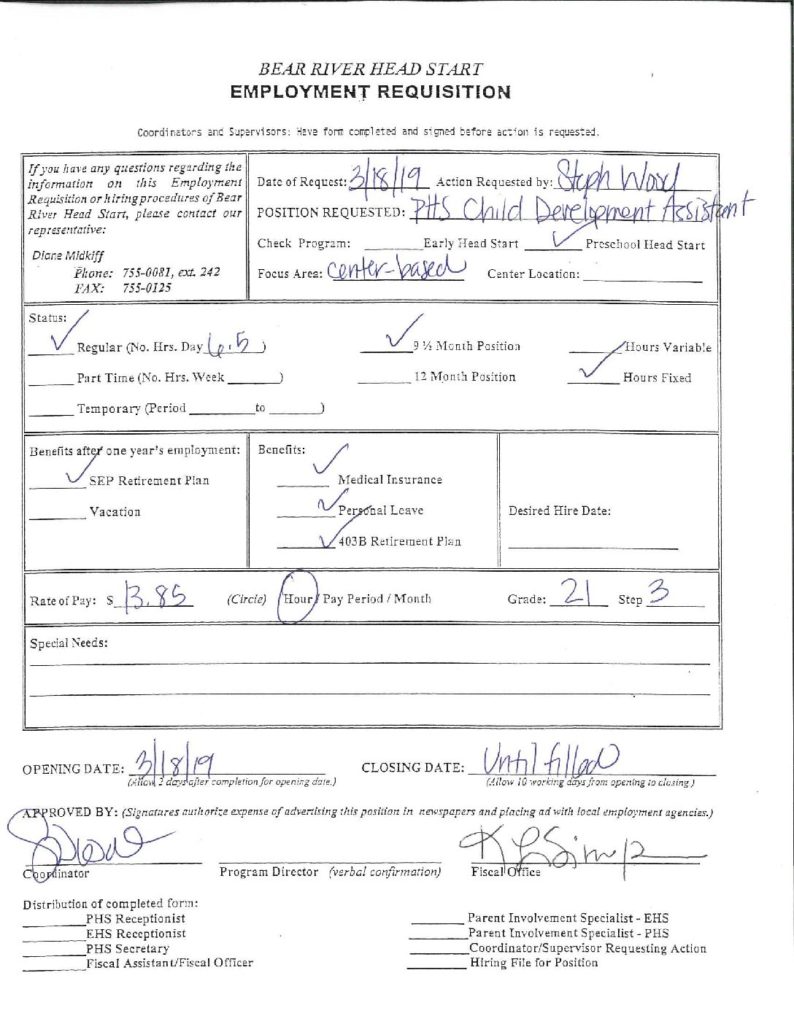 BEAR RIVER HEAD START
EMPLOYMENT REQUISITION
Coordinators and Supervisors: Have form completed and signed before action is requested.
If you have any questions regarding the
information on this Employment
Requisition or hiring procedures of Bear
River Head Start, please contact our
representative:
Diane Midkiff
Phone: 755-0081, ext. 242
FAX: 755-0125
Date of Request: 3/18/19 Action Requested by: Steph Wood
POSITION REQUESTED: PHS Child Development Assistant
Check Program: ______ Early Head Start ___✓___ Preschool Head Start
Focus Area: center-based Center Location: ______
Status:
✓ Regular (No. Hrs. Day 6.5 ) ✓ 9 ½ Month Position ______ Hours Variable
______ Part Time (No. Hrs. Week ______) ______ 12 Month Position ✓ Hours Fixed
______ Temporary (Period ______ to ______)
Benefits after one year's employment:
✓ SEP Retirement Plan
______ Vacation
Benefits:
✓ Medical Insurance
✓ Personal Leave
✓ 403B Retirement Plan
Desired Hire Date:
Rate of Pay: $ 13.85 (Circle) Hour / Pay Period / Month Grade: 21 Step 3
Special Needs:
OPENING DATE: 3/18/19 CLOSING DATE: Until filled
(Allow 3 days after completion for opening date.) (Allow 10 working days from opening to closing.)
APPROVED BY: (Signatures authorize expense of advertising this position in newspapers and placing ad with local employment agencies.)
Coordinator Program Director (verbal confirmation) Fiscal Office
Distribution of completed form:
______ PHS Receptionist ______ Parent Involvement Specialist - EHS
______ EHS Receptionist ______ Parent Involvement Specialist - PHS
______ PHS Secretary ______ Coordinator/Supervisor Requesting Action
______ Fiscal Assistant/Fiscal Officer ______ Hiring File for Position